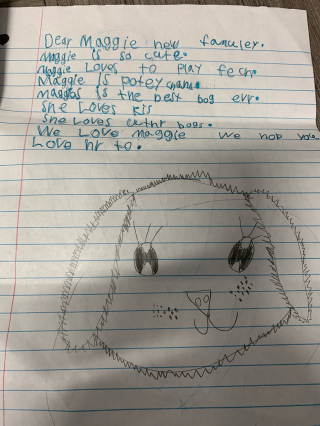 Dear Maggie new famuley.
Maggie is so cute.
Maggie Loves to play fech.
Maggie is potey
Maggos is the best bog evr.
She Loves kis
She Loves uthr bogs.
We Love Maggie We hop you
Love hr to.